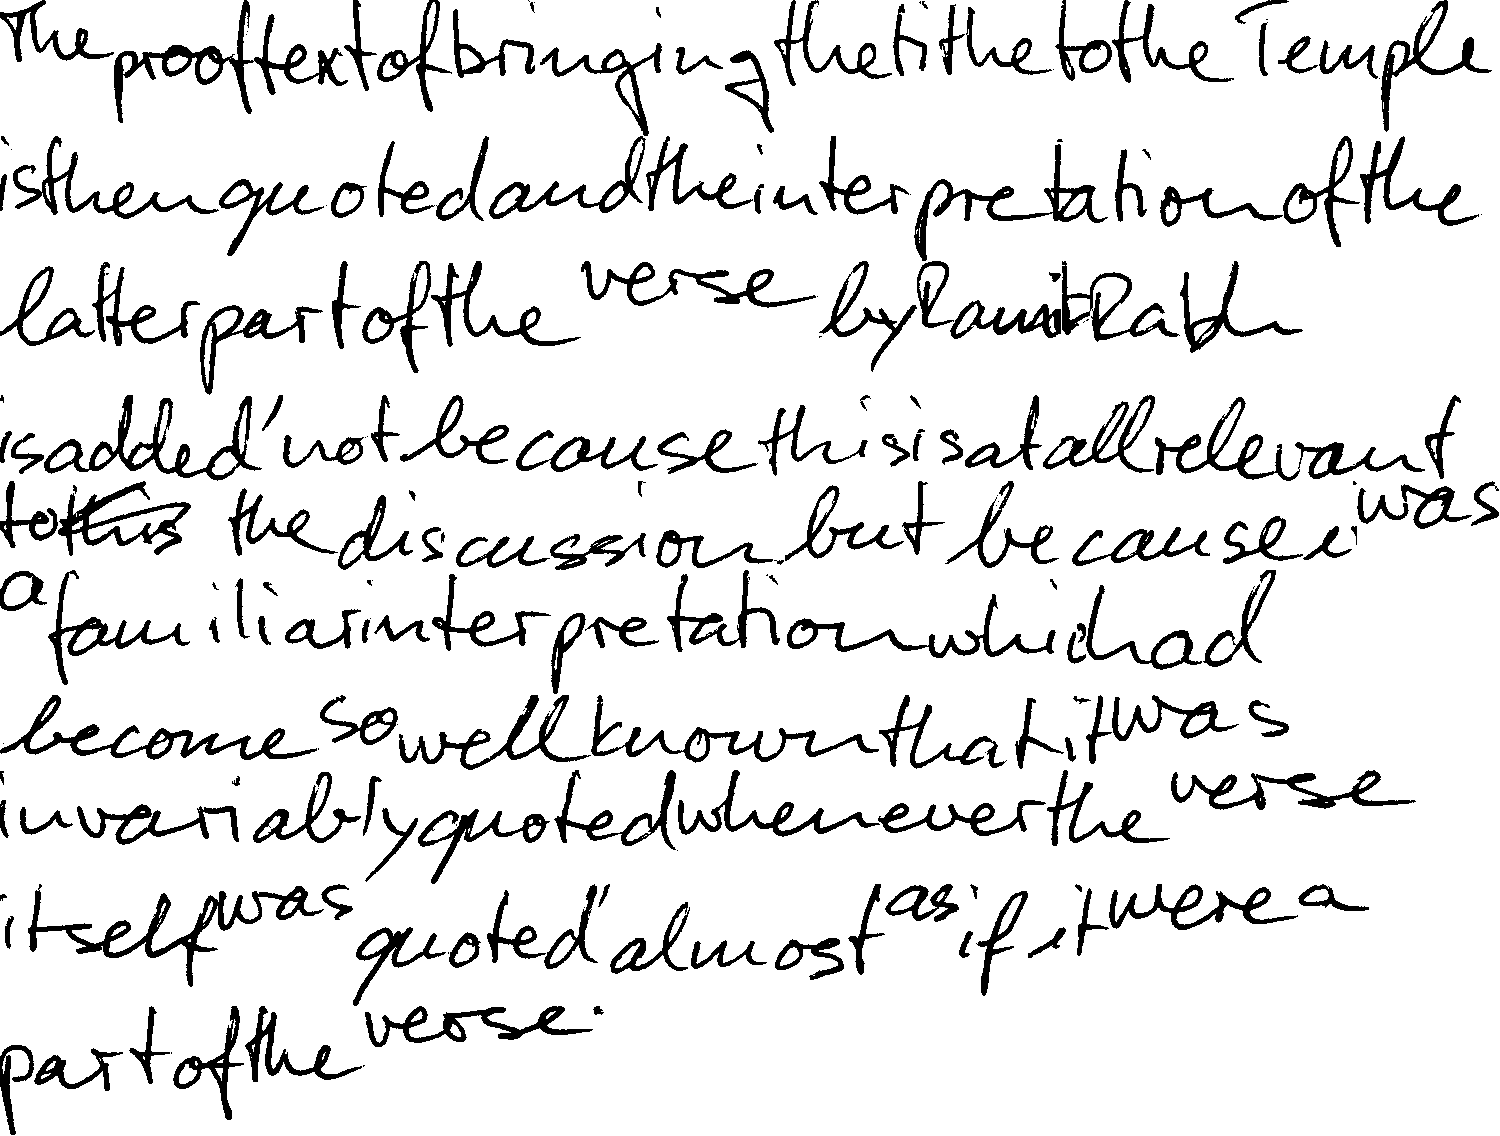 The proof text of bringing the tithe to the Temple
is then quoted and the interpretation of the
latter part of the verse by
is added, not because this is at all relevant
to the discussion but because it was
a familiar interpretation which had
become so well known that it was
invariably quoted whenever the verse
itself was quoted, almost as if it were a
part of the verse.